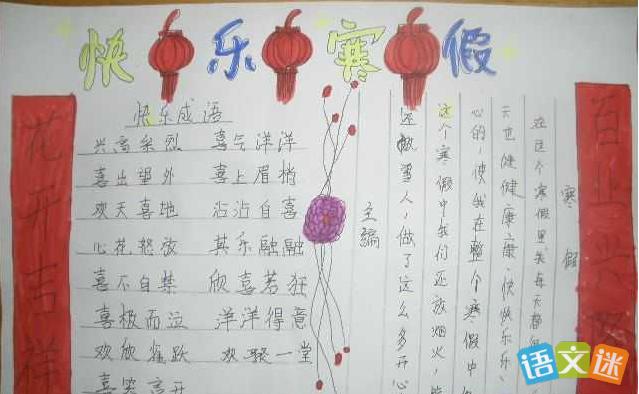 快乐寒假
花开吉样
快乐成语
兴高采烈 喜气洋洋
喜出望外 喜上眉梢
欢天喜地 沾沾自喜
心花怒放 其乐融融
喜不自禁 欣喜若狂
喜极而泣 洋洋得意
欢欣雀跃 欢聚一堂
喜笑言开
百业
寒假
在这个寒假里,我每天都
天也健健康康、快快乐乐、
心的,使我在整个寒假中
这个寒假中我们还放烟火,
还做雪人,做了这么多开心
主编
语文迷